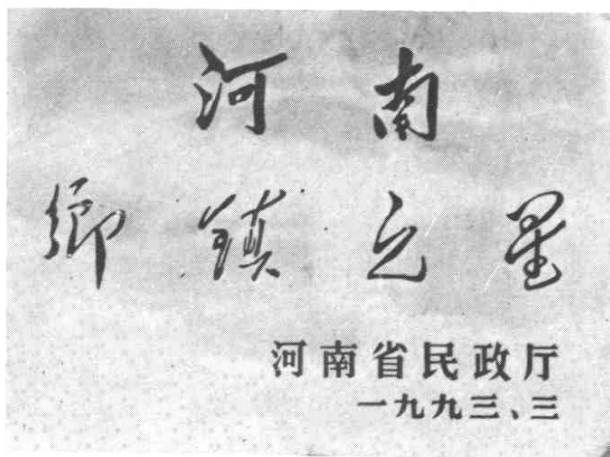 河南
鄉镇之星
河南省民政厅
一九九三、三